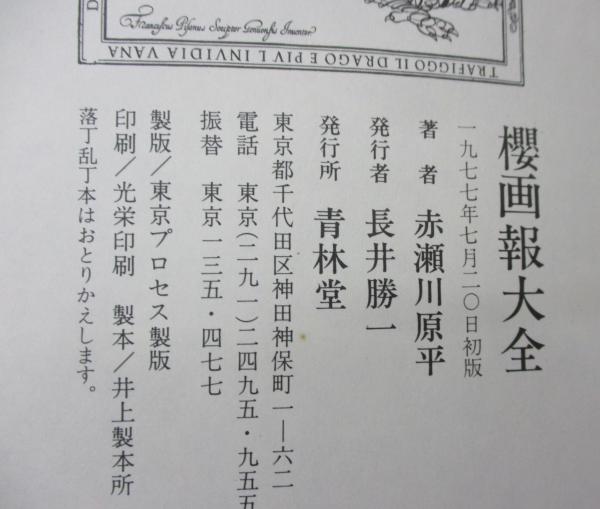 Franciscus Pisenus Sculptor Genuensis Inventor
TRAFIGGO IL DRAGO E PIV L INVIDIA VANA
櫻画報大全
一九七七年七月二〇日初版
著者 赤瀬川原平
発行者 長井勝一
発行所 青林堂
東京都千代田区神田神保町一—六二
電話 東京(二九一)二四九五・九五五
振替 東京一三五・四七七
製版/東京プロセス製版
印刷/光栄印刷 製本/井上製本所
落丁乱丁本はおとりかえします。